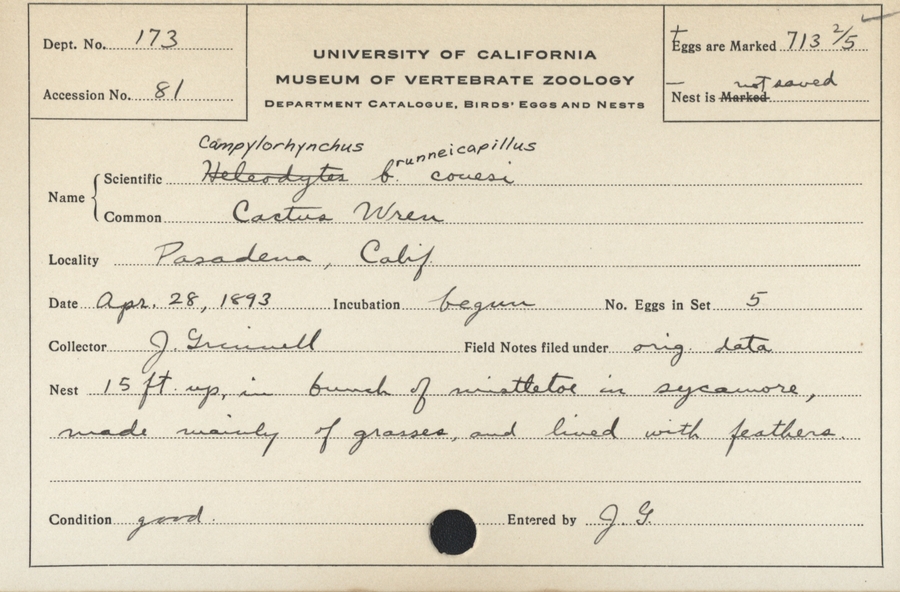 Dept. No. 173
Accession No. 81
UNIVERSITY OF CALIFORNIA
MUSEUM OF VERTEBRATE ZOOLOGY
DEPARTMENT CATALOGUE, BIRDS' EGGS AND NESTS
Eggs are Marked 713 2/5
not saved
Nest is Marked
Campylorhynchus runneicapillus
Name
Scientific Heleodytes b. couesi
Common Cactus Wren
Locality Pasadena, Calif.
Date Apr. 28, 1893 Incubation begun No. Eggs in Set 5
Collector J. Grinnell Field Notes filed under orig. data
Nest 15 ft. up, in bunch of mistletoe in sycamore,
made mainly of grasses, and lined with feathers.
Condition good. Entered by J. G.